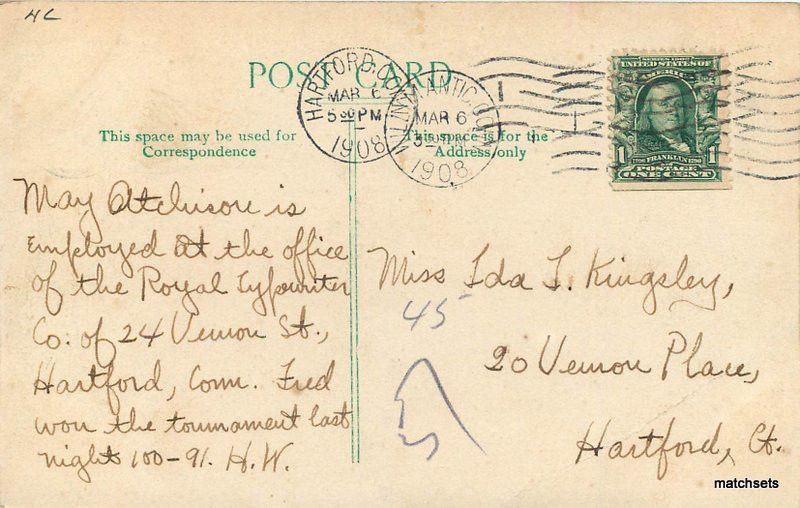 HC
POST CARD
HARTFORD, CONN.
MAR 6
5 30 PM
1908
MAR 6
1908
SERIES 1902
UNITED STATES OF
AMERICA
1 FRANKLIN 1
POSTAGE
ONE CENT
This space may be used for
Correspondence
This space is for the
Address only
May Atchison is
employed at the office
of the Royal Typewriter
Co. of 24 Vernon St.,
Hartford, Conn. Fred
won the tournament last
night 100-91. H.W.
Miss Ida T. Kingsley,
45
20 Vernon Place,
Hartford, Ct.
matchsets